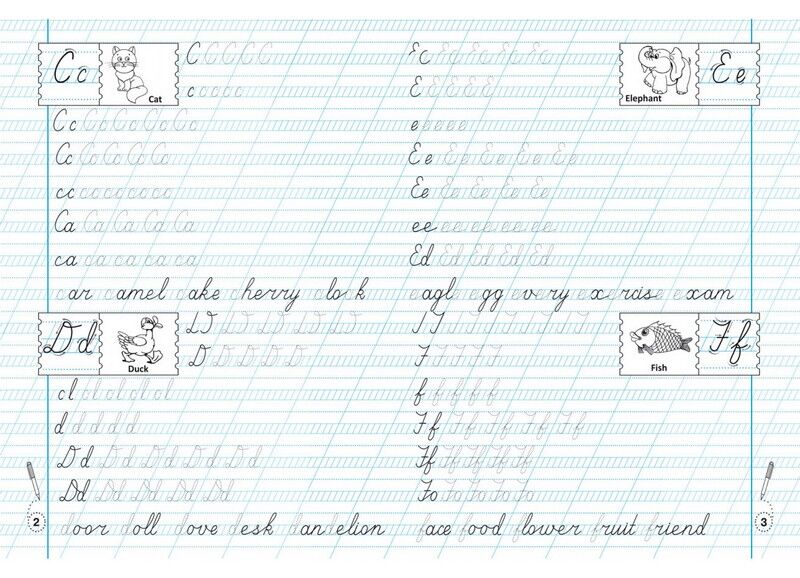 Cc
Cat
C C C C C
c c c c c
Cc Cc Cc Cc Cc
Cc Cc Cc Cc Cc
cc cc cc cc cc
Ca Ca Ca Ca Ca
ca ca ca ca ca
car camel cake cherry clock
Dd
Duck
D D D D D
d d d d d
Dd Dd Dd Dd Dd
Dd Dd Dd Dd Dd
door doll dove desk dandelion
2
Ee
Elephant
E E E E E
e e e e e
Ee Ee Ee Ee Ee
Ee Ee Ee Ee Ee
ee ee ee ee ee
Ed Ed Ed Ed Ed
eagle egg every exercise exam
Ff
Fish
f f f f f
Ff Ff Ff Ff Ff
Ff Ff Ff Ff Ff
Fo Fo Fo Fo Fo
face food flower fruit friend
3